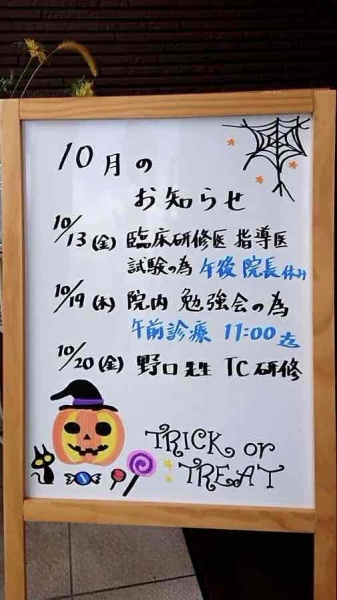 10月の
お知らせ
10/13(金) 臨床研修医 指導医
試験の為 午後 院長 休み
10/19(木) 院内 勉強会の為
午前診療 11:00 迄
10/20(金) 野口先生 TC研修
TRICK or
TREAT